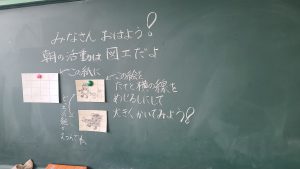 みなさん おはよう!
朝の活動は 図工だよ
この紙に
この絵を
たてと横の線を
めじるしにして
大きくかいてみよう!